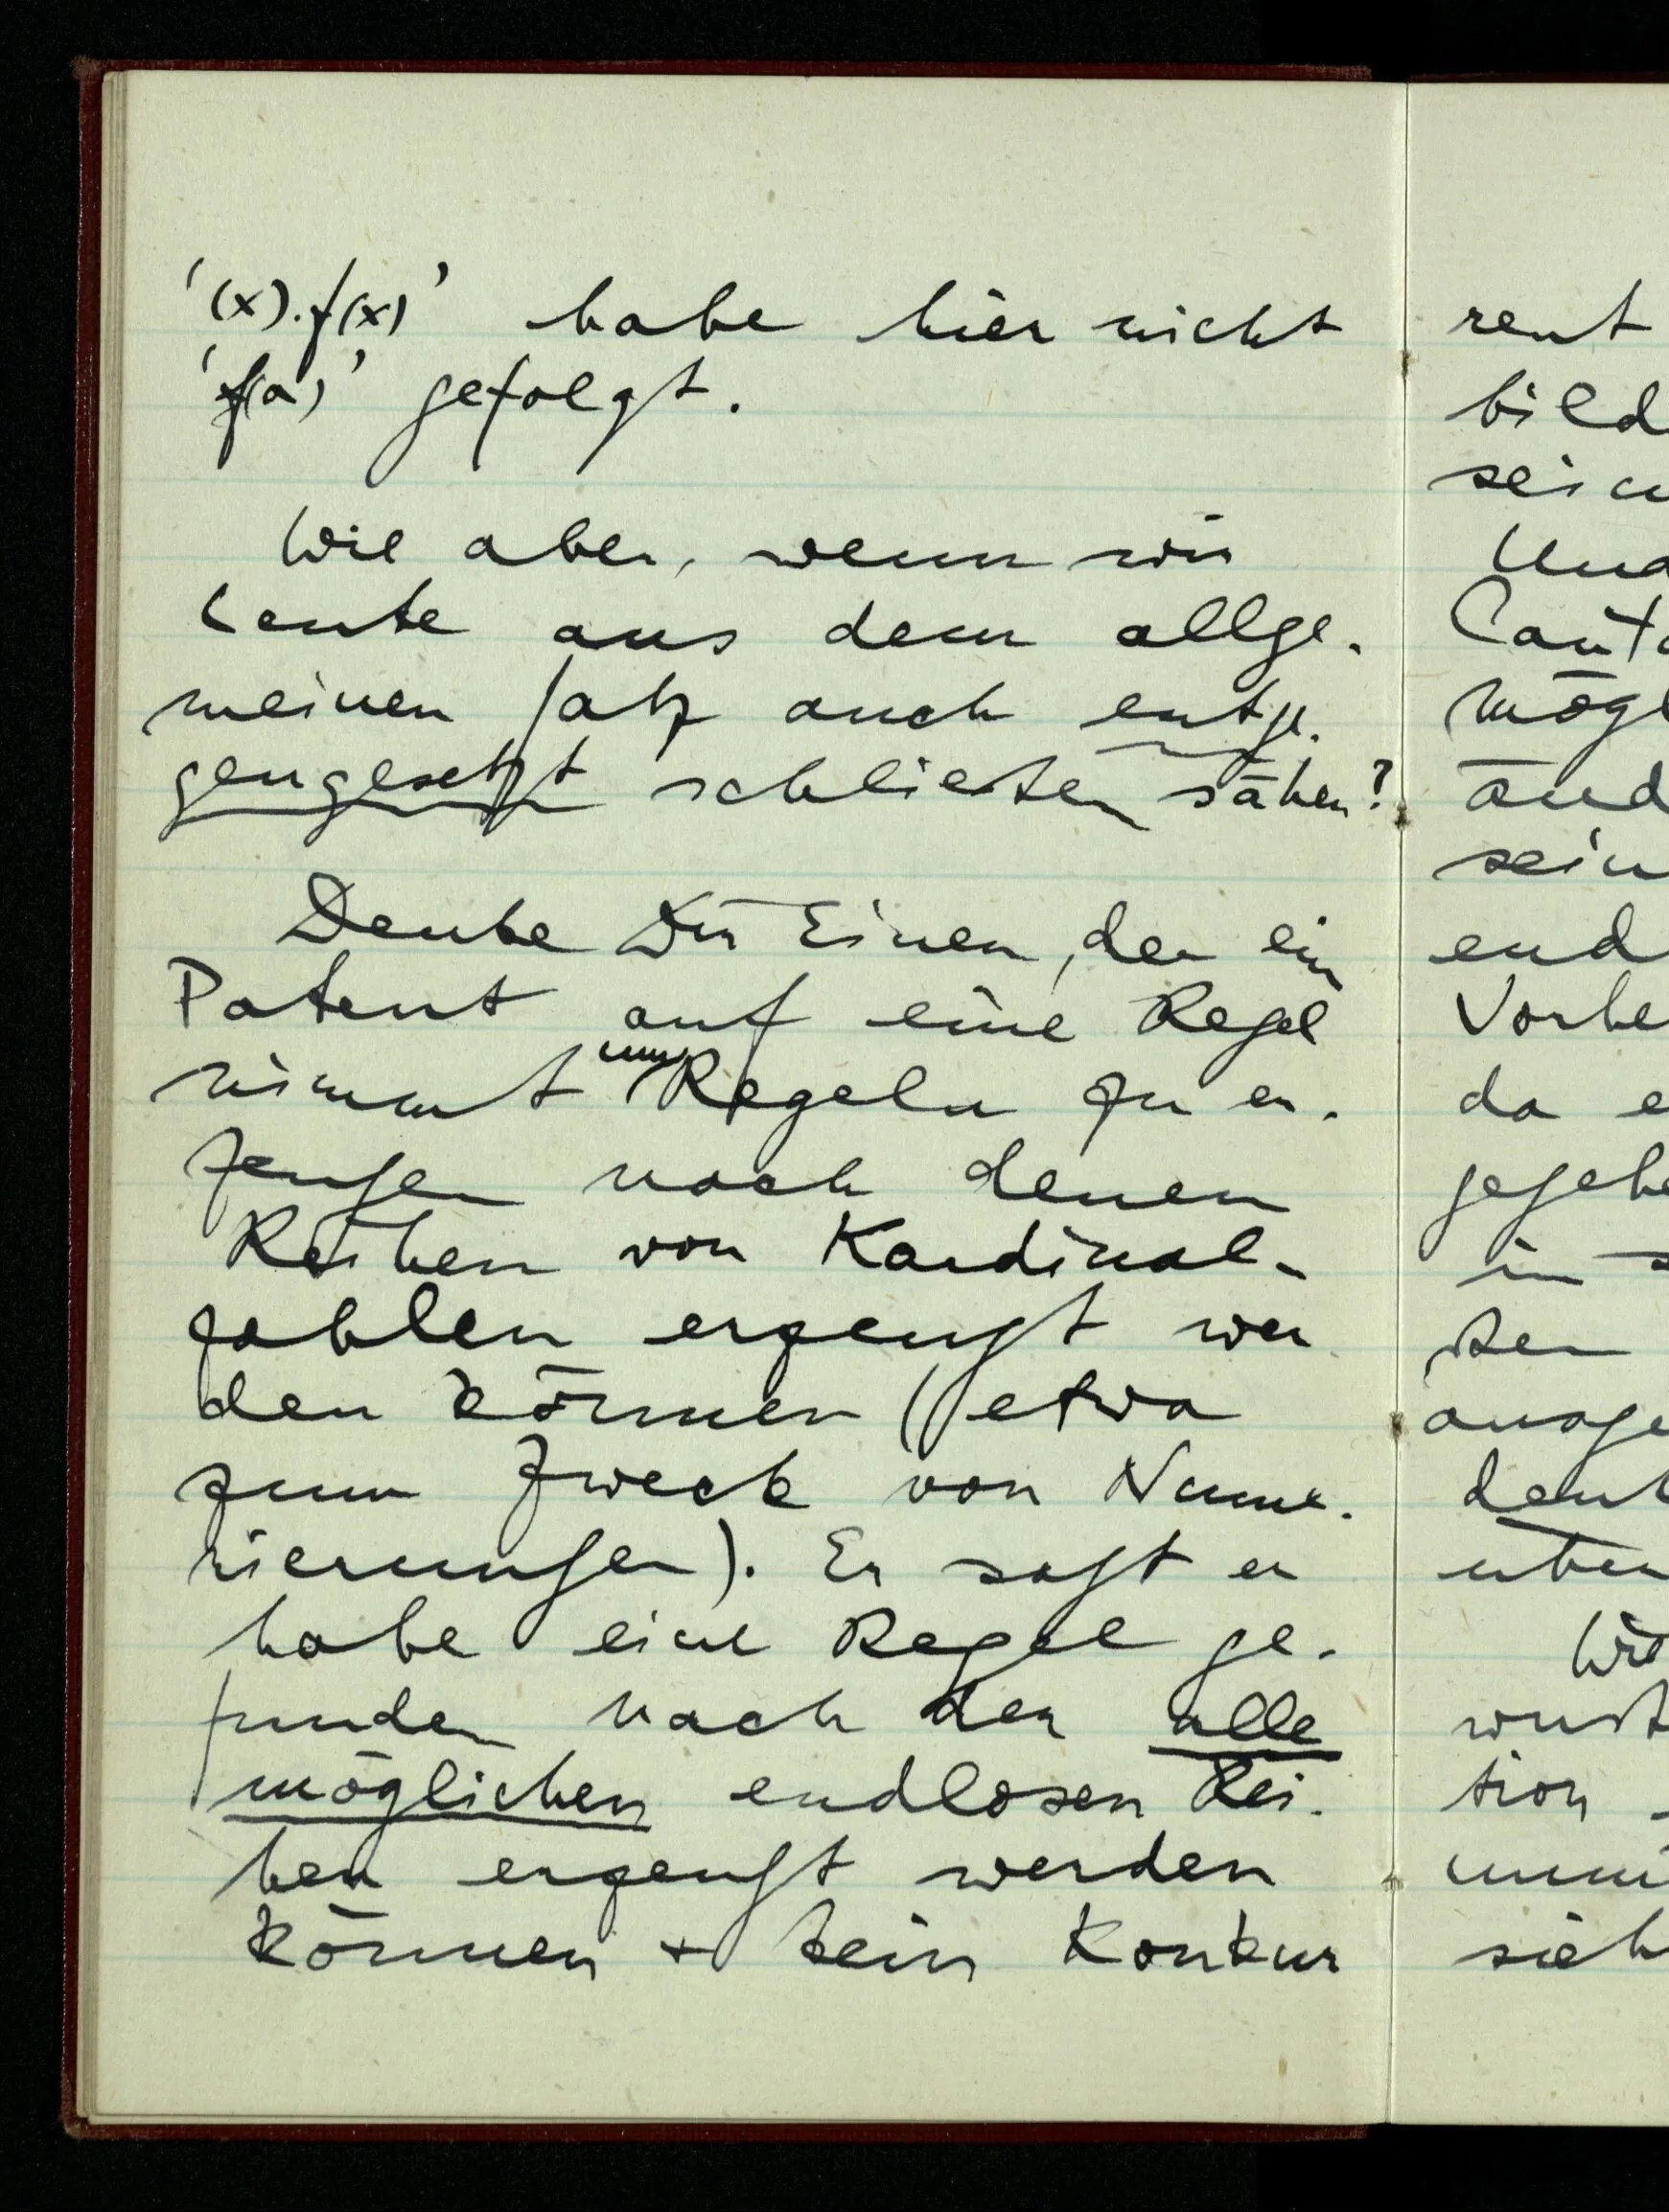 '(x).f(x)' habe hier nicht
'f(a)' gefolgt.
Wie aber, wenn wir
Leute aus dem allge-
meinen Satz auch entge-
gengesetzt schließen sähen?
Denke Dir Einen, der ein
Patent auf eine Regel
nimmt um Regeln zu er-
zeugen nach denen
Reihen von Kardinal-
zahlen erzeugt wer
den können (etwa
zum Zweck von Nume-
rierungen). Er sagt er
habe eine Regel ge-
funden nach der alle
möglichen endlosen Rei-
hen erzeugt werden
können & kein Konkur
rent
bild
sein
Und
Canto
mögl
änd
sein
end
Vorhe
da e
gegebe
in
ten
ausge
denk
üben
Wit
wußt
tion
sieh